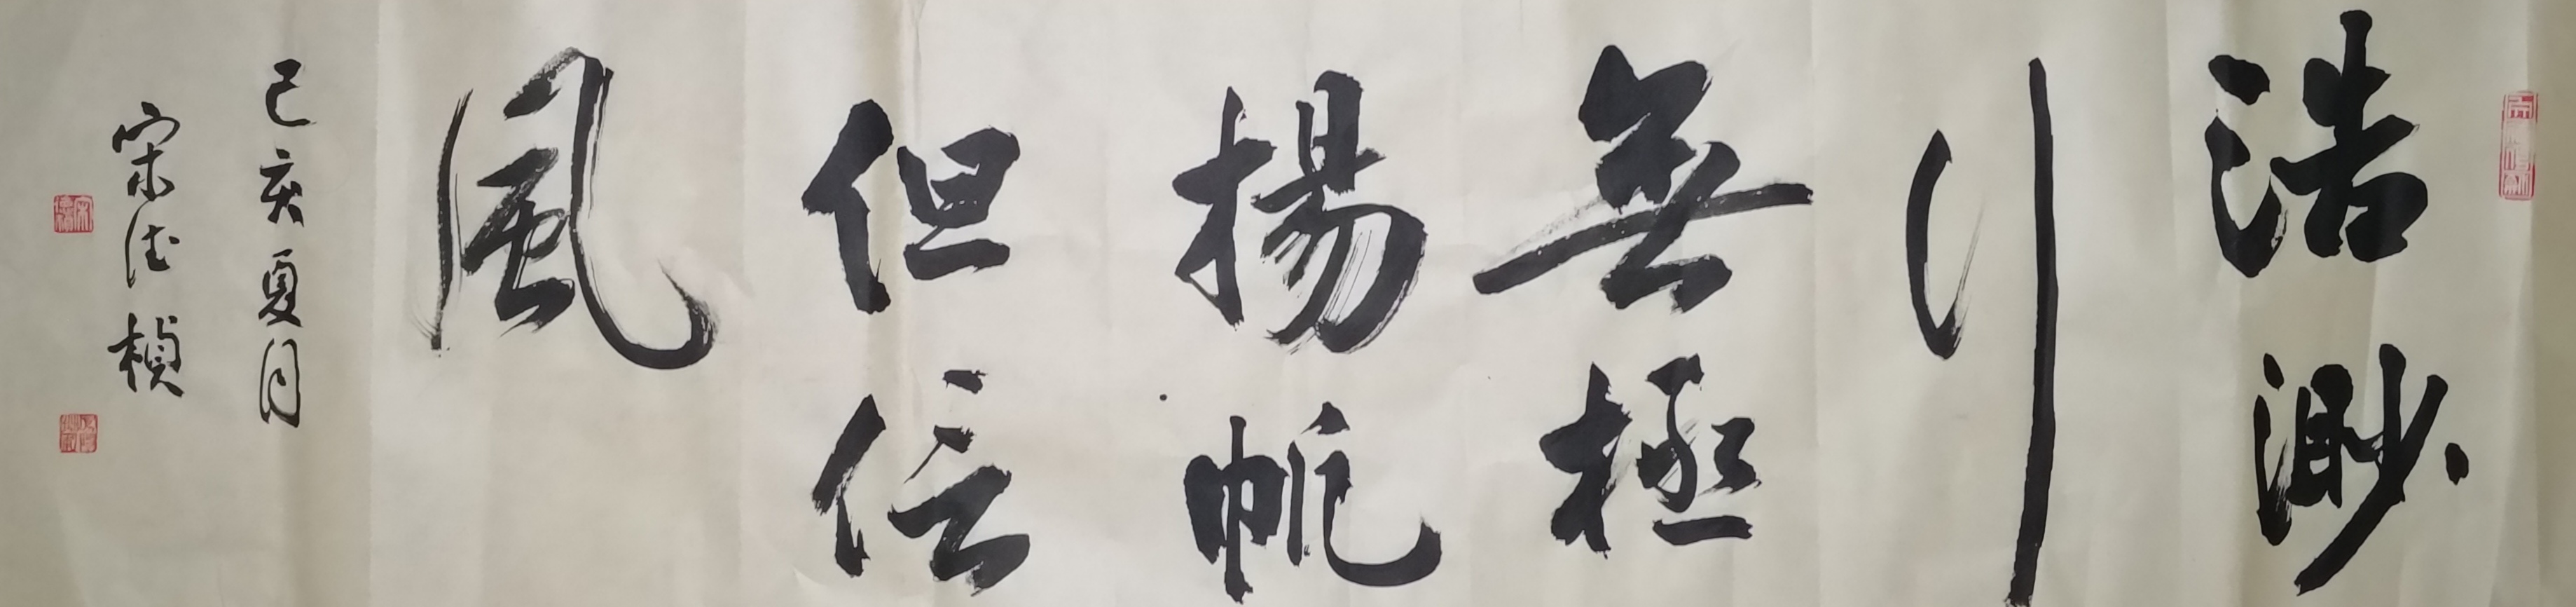 浩渺
行
無極
揚帆
但信
風
己亥夏月
宋德楨